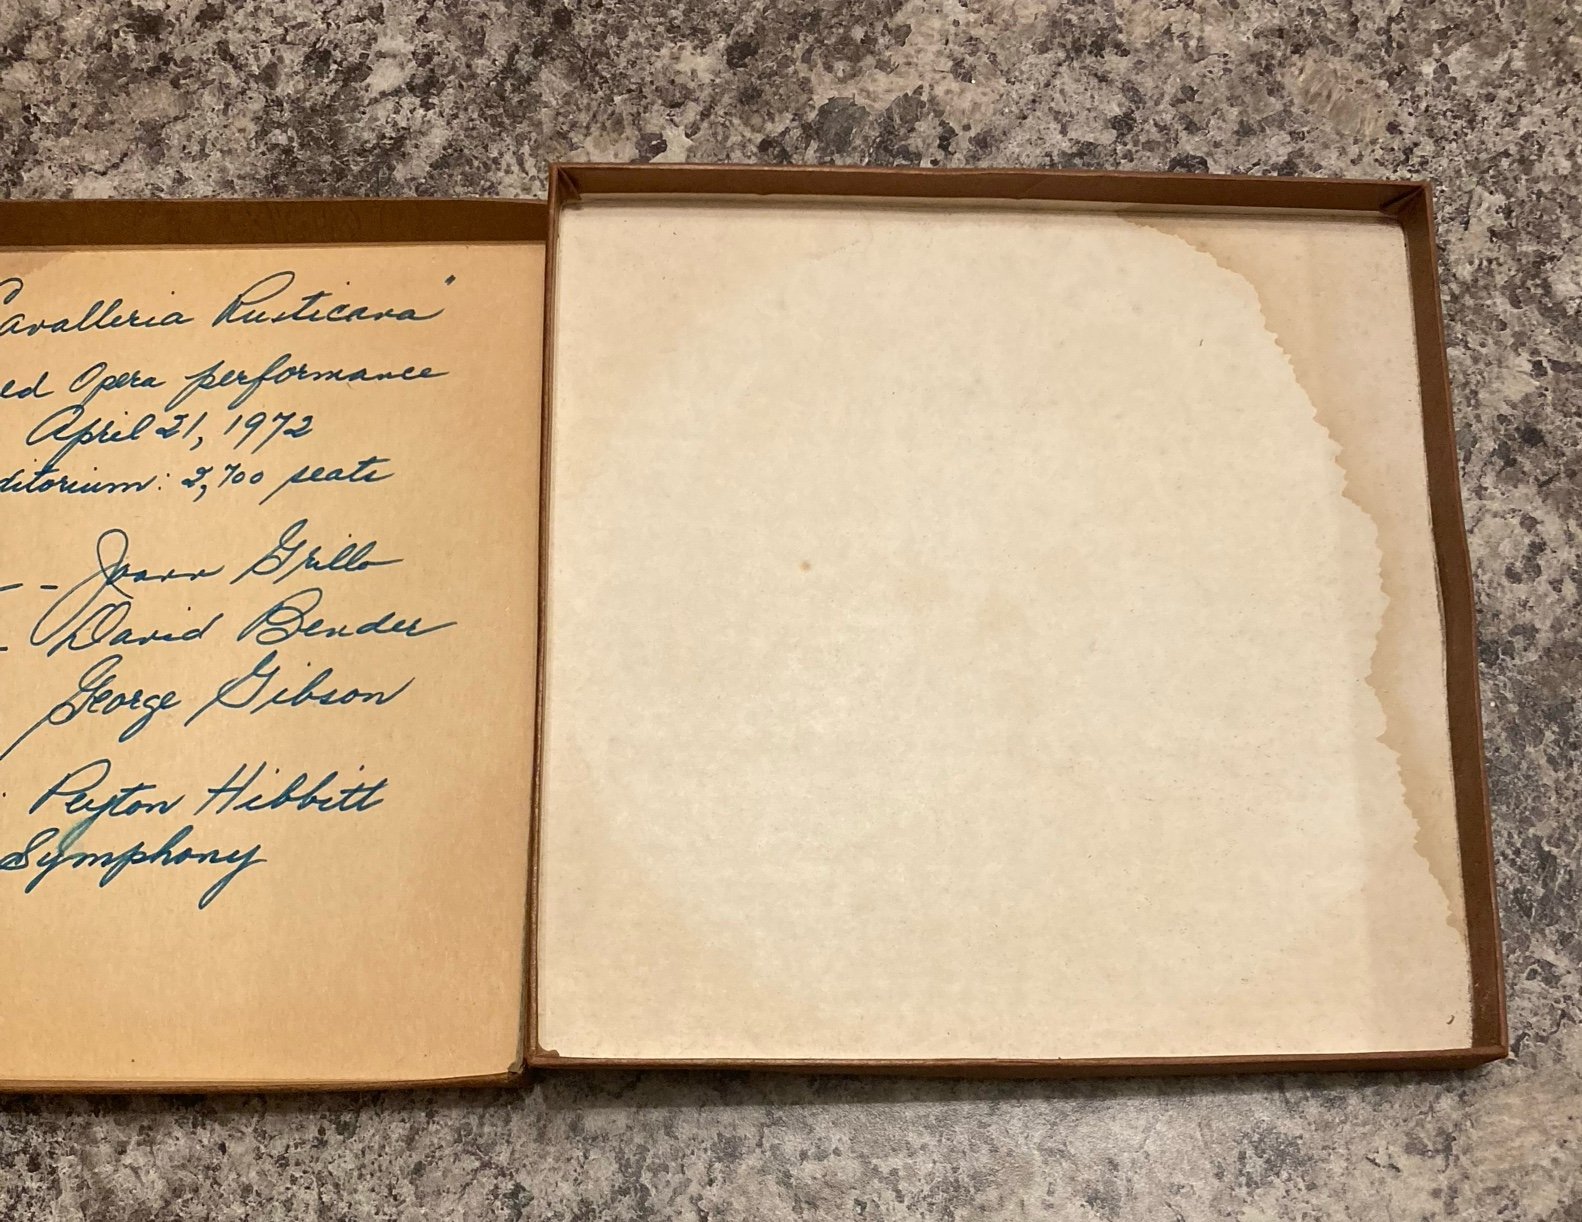 Cavalleria Rusticana"
ed Opera performance
April 21, 1972
ditorium: 2,700 seats
- - Joann Grillo
- David Bender
George Gibson
: Peyton Hibbitt
Symphony